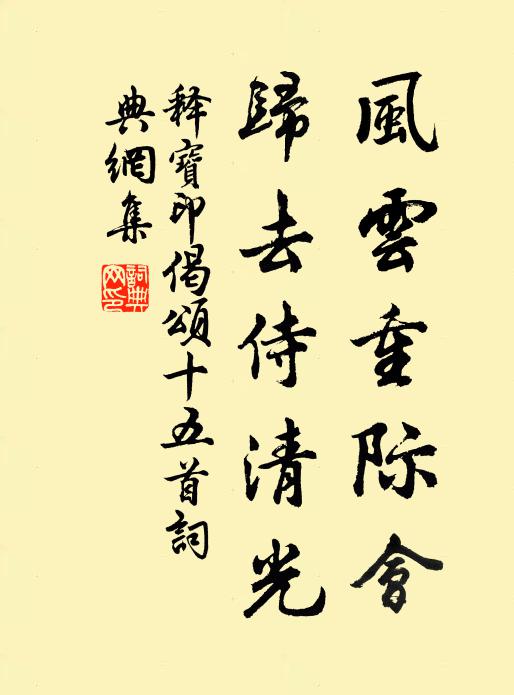 風雲重际會
歸去侍清光
释寶印偈頌十五首詞
典網集
詞典网印